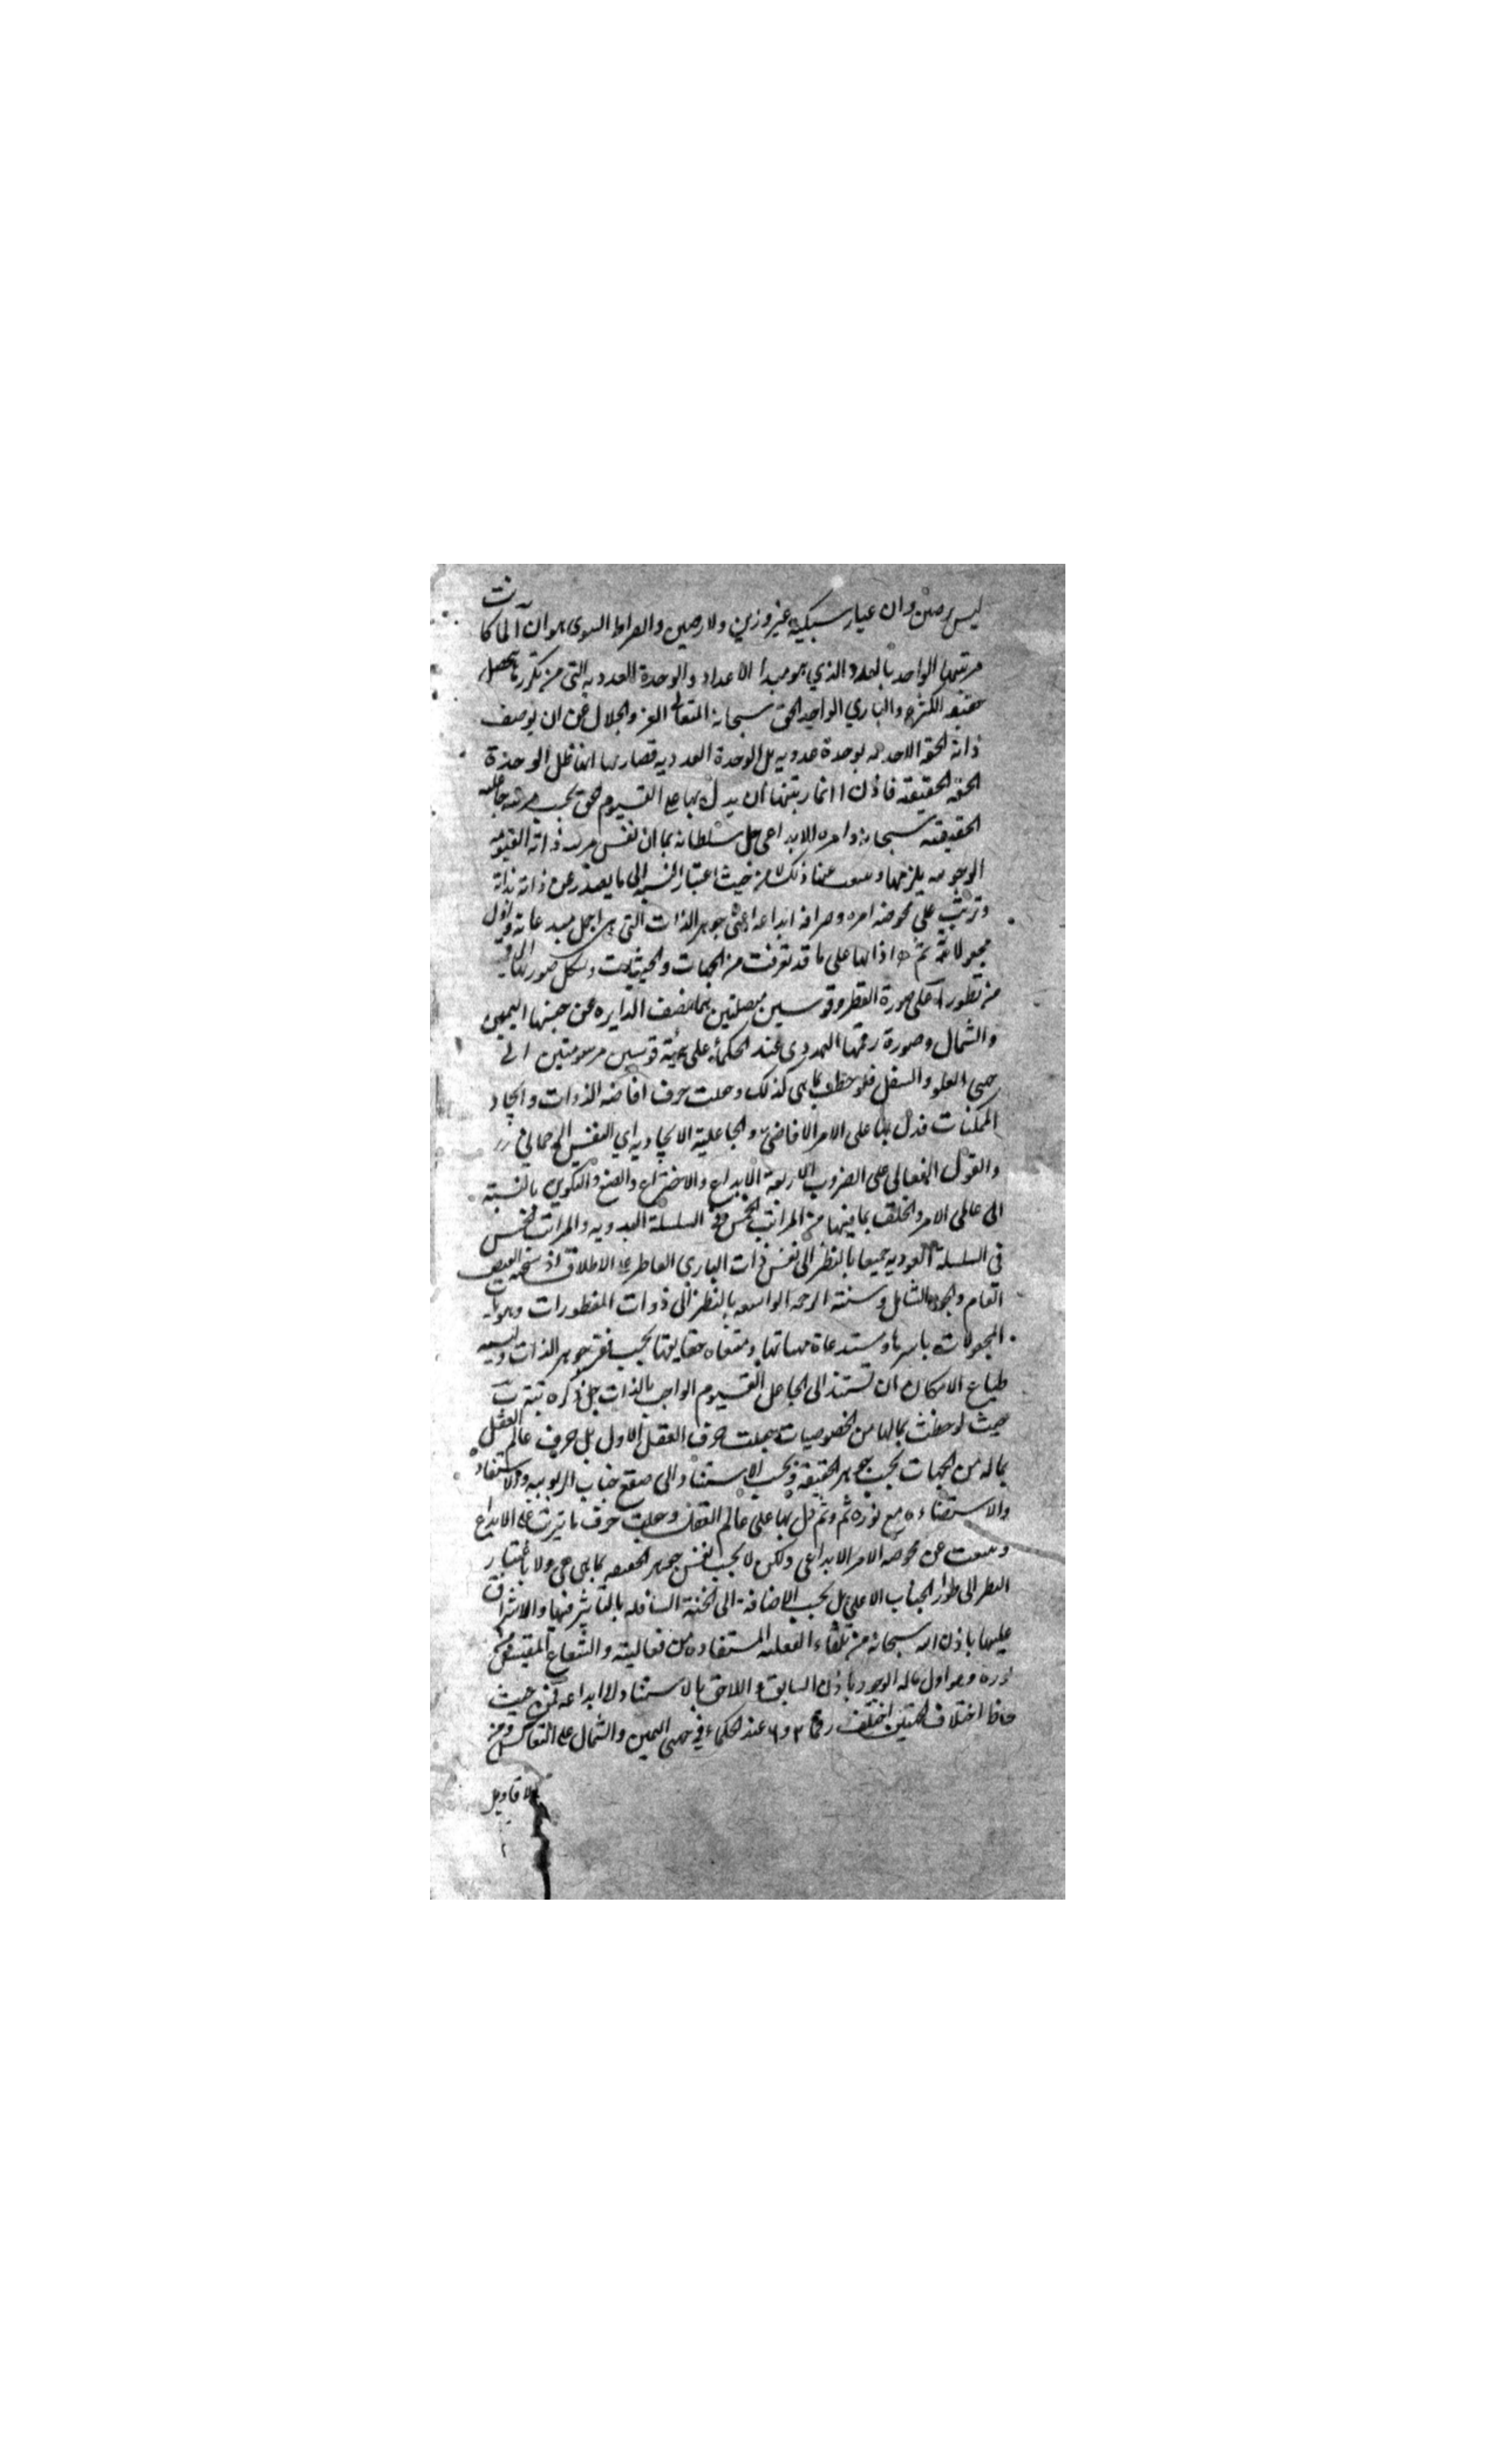 ليس برصين وان عيار سبيكته غير وزين ولا رصين والصراط السوى هو ان آ لما كانت
مرتبتها الواحد بالعدد الذي هو مبدا الاعداد والوحدة العددية التي من تكررها تحصل
حقيقة الكثرة والباري الواحد الحق سبحانه المتعالى العز والجلال عن ان يوصف
ذاته الحقة الاحدية بوحدة عددية بل الوحدة العددية قصاراها انها ظل الوحدة
الحقة الحقيقية فاذن ا انما رتبتها ان يدل بها على القيوم الحق بحسب مرتبة جاعليته
الحقيقية سبحانه وامره الابداعى جل سلطانه بما ان نفس مرتبة ذاته القيومية
الوجوبية يلزمها وينبعث عنها ذلك لا من حيث اعتبار النسبة الى ما يصدر عن ذاته بذاته
وترتب على محوضة امره وصرافة ابداعه اعنى جوهر الذات التي هى اجمل مبدعاته واول
مجعولاته ثم ه اذ لها على ما قد تعرفت من الجهات والحيثيات وشكل صورتها
من تطورا على صورة القطر وقوسين متصلتين بهما نصف الدايره عن جنبتها اليمين
والشمال وصورة رقمها العددى عند الحكماء على هيئة قوسين مرسومتين الى
جهتى العلو والسفل فلوحظت بما هى كذلك وجعلت حرف افاضه الذوات وايجاد
الممكنات فدل بها على الامر الافاضى والجاعلية الايجادية اي النفس الرحماني
والقول الفعالى على الضروب الاربعة الابداع والاختراع والصنع والتكوين بالنسبة
الى عالمى الامر والخلق بما فيهما من المراتب الخمس في السلسلة البدوية والمراتب الخمس
في السلسلة العودية جميعا بالنظر الى نفس ذات الباري الفاطر على الاطلاق اذ سنخية الفيض
التام والجود الشامل وسنته الرحمة الواسعه بالنظر الى ذوات المفطورات وهويات
المجعولات باسرها ومستدعاة مهياتها ومقتضاة حقايقها بحسب فقر جوهر الذات وليسية
طباع الامكان ان تستند الى الجاعل القيوم الواجب بالذات جل ذكره
حيث لوحظت بمالها من الخصوصيات جعلت حرف العقل الاول بل حرف عالم العقل
بماله من الجهات بحسب جوهر الحقيقة وبحسب الاستناد الى صقع جناب الربوبيه والاستفاده
والاستضاءه مع نوره ثم وثم دل بها على عالم العقل وجعلت حرف ما ترتب على الابداع
وينبعث عن محوضه الامر الابداعي ولكن لا بحسب نفس جوهر الحقيقه بما هى هى ولا باعتبار
النظر الى طوار الجناب الاعلى بل بحسب الاضافة الى الجنبة السافله بالتاثير فيها والاشراق
عليها باذن الله سبحانه من تلقاء الفعليه المستفاده من فعاليته والشعاع المقتبس من
نوره وهو اول ماله الوجود باذن السابق واللاحق بالاستناد الى ابداعه فمن حيث
حاذا اختلاف الجهتين اختلف رقما ٢ و ٦ عند الحكماء في جهتى اليمين والشمال على التعاكس ومن
الاقاويل